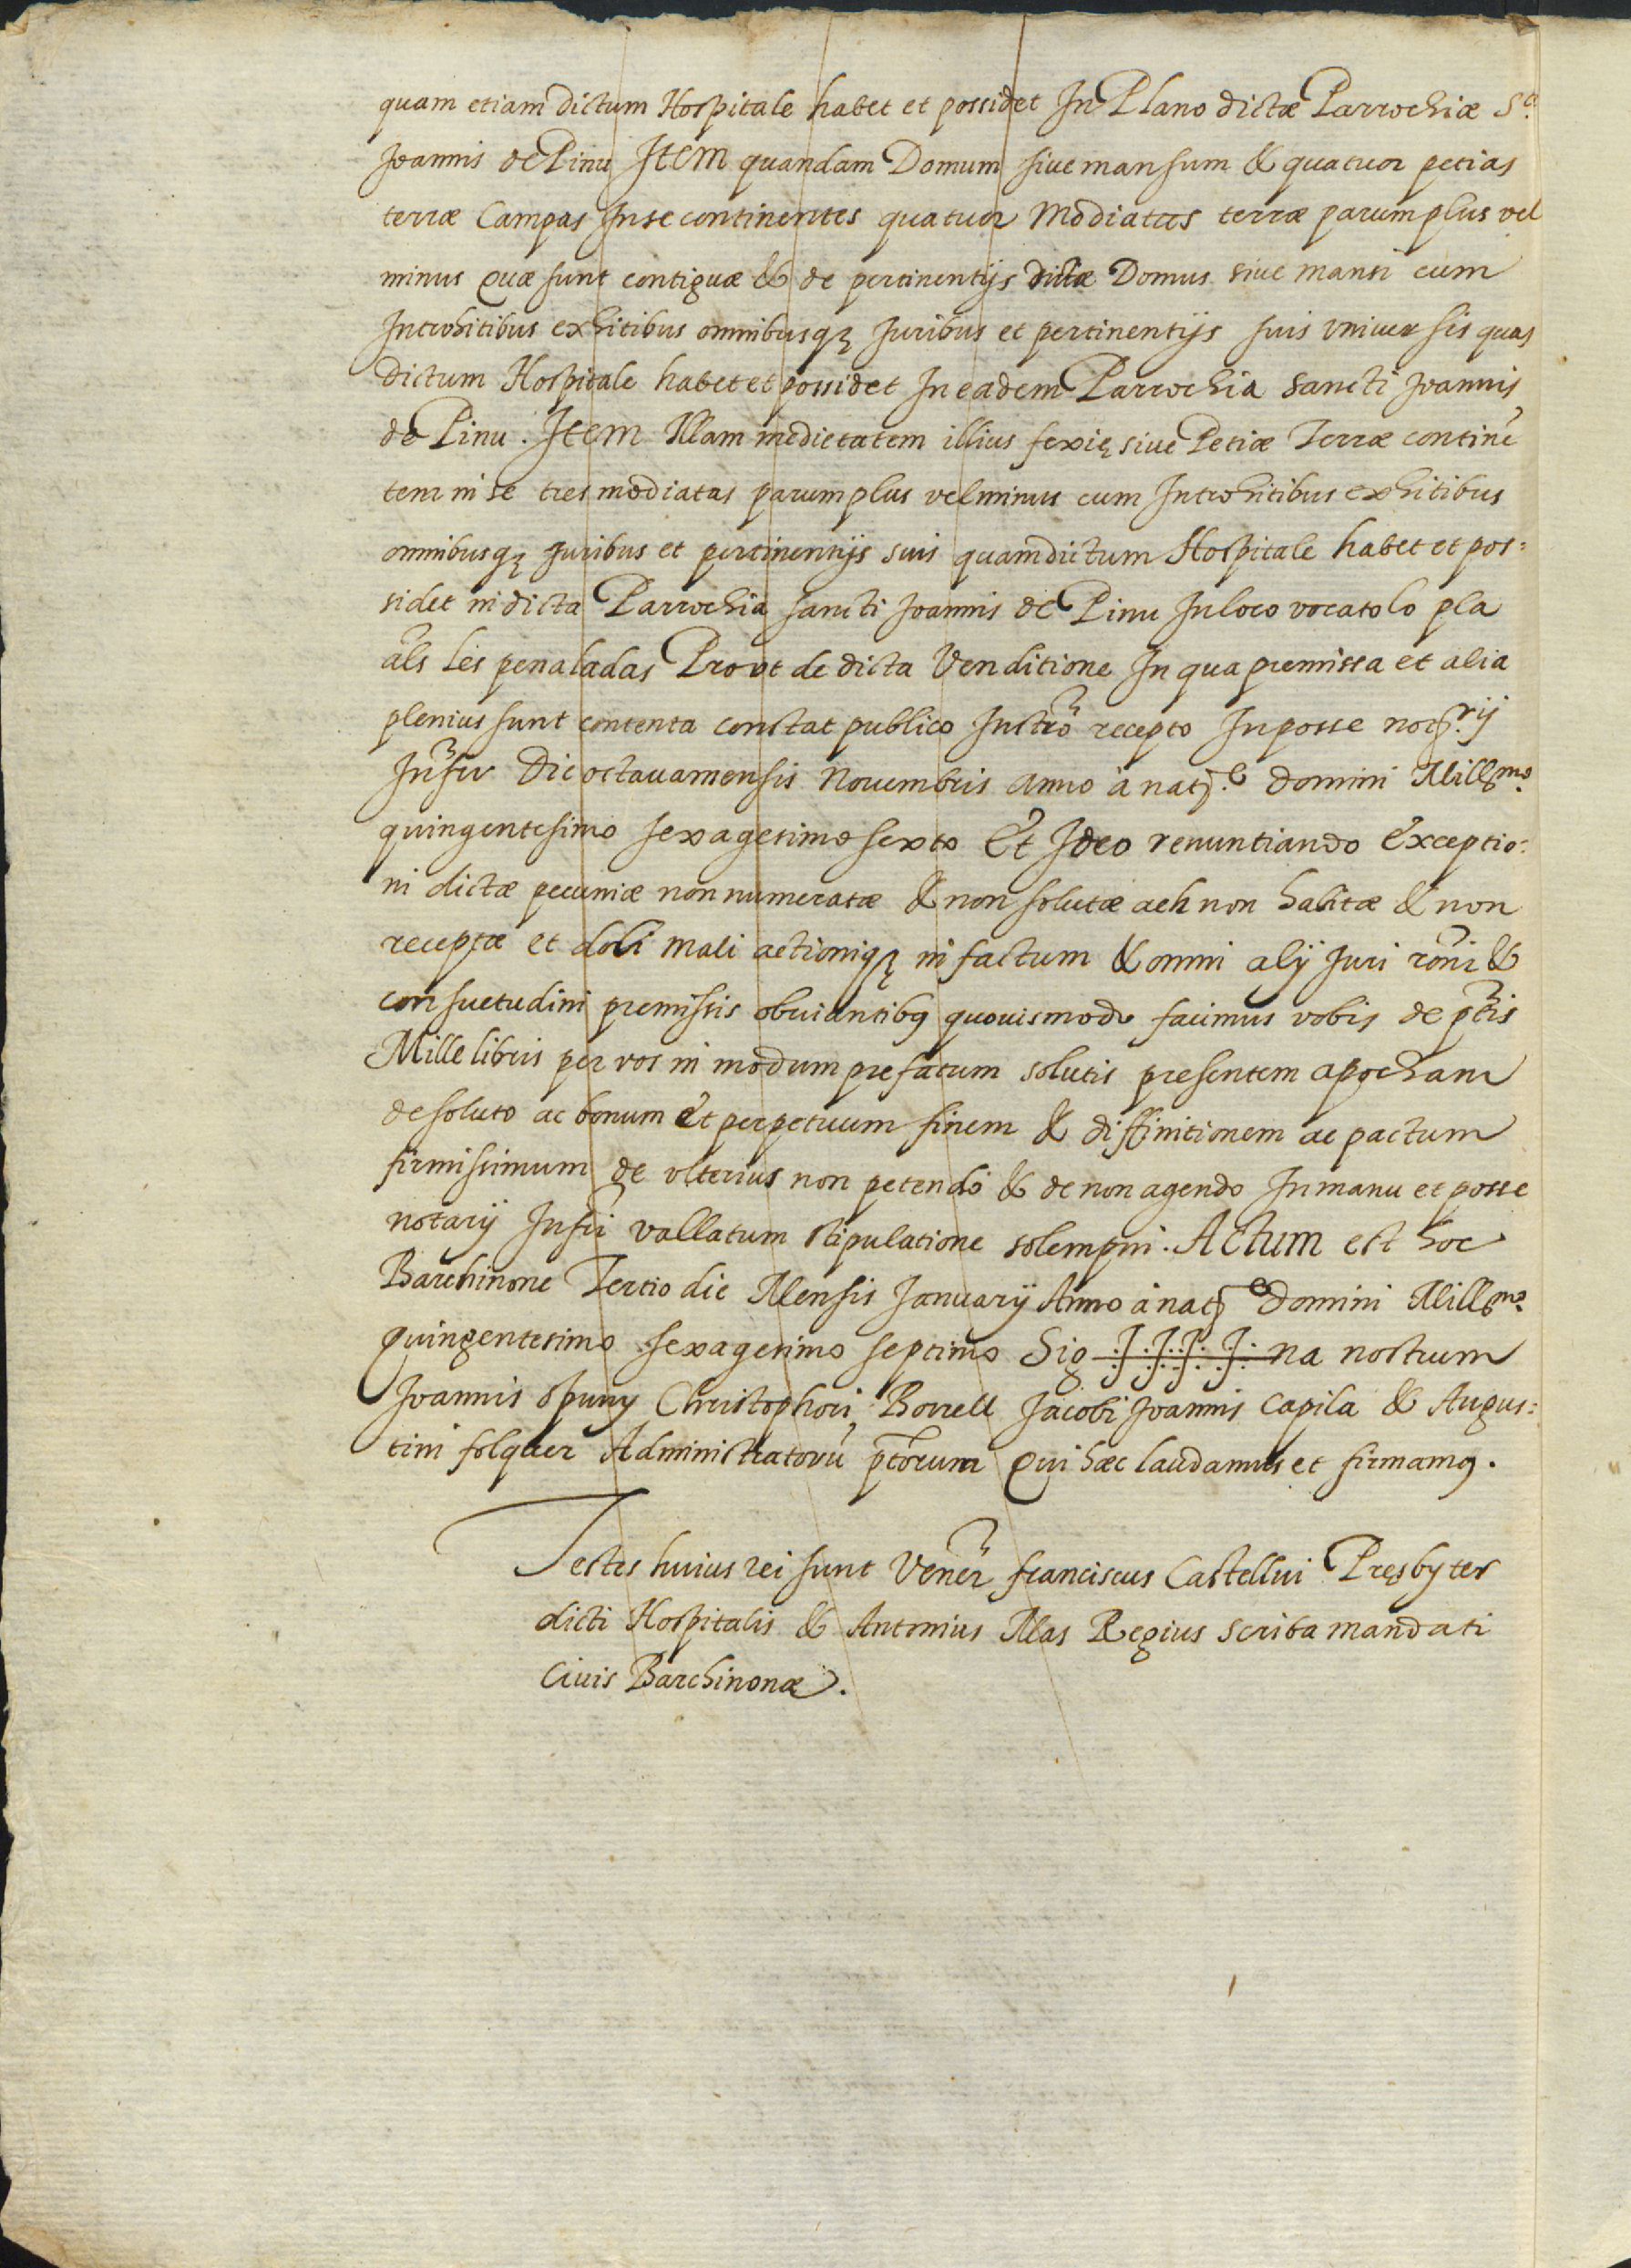 quam etiam dictum Hospitale habet et possidet In Plano dictæ Parrochiæ S.ti
Joannis de Pinu Item quandam Domum siue mansum & quatuor petias
terræ Campas In se continentes quatuor Modiatas terræ parum plus vel
minus quæ sunt contiguæ & de pertinentijs dictæ Domus siue mansi cum
Introhitibus exhitibus omnibusqȝ Juribus et pertinentijs suis vniuersis quas
dictum Hospitale habet et possidet In eadem Parrochia Sancti Joannis
de Pinu. Item Illam medietatem illius fexię siue Petiæ Terræ contine͂
tem in se tres modiatas parum plus vel minus cum Introhitibus exhitibus
omnibusqȝ Juribus et pertinentijs suis quam dictum Hospitale habet et pos=
sidet in dicta Parrochia sancti Joannis de Pinu In loco vocato lo pla
al͂s les penaladas Provt de dicta Venditione In qua premissa et alia
plenius sunt contenta constat publico Instro͂ recepto In posse not.rij
Inf͂r Die octaua mensis Nouembris Anno à nat.e Domini Mill.mo
quingentesimo sexagesimo sexto Et Ideo renuntiando Exceptio=
ni dictæ pecuniæ non numeratæ & non solutæ ac non habitæ & non
receptæ et doli mali actioniqȝ in factum & omni alij Juri ro͂ni &
consuetudini premissis obuiantibꝯ quouismodo facimus vobis de p͂tis
Mille libris per vos in modum prefatum solutis presentem apocham
de soluto ac bonum et perpetuum finem & diffinitionem ac pactum
firmissimum de vlterius non petendo & de non agendo In manu et posse
notarij Inf͂ri vallatum stipulatione solempni. Actum est hoc
Barchinone Tertio die Mensis Januarij Anno à nat.e Domini Mill.mo
quingentesimo sexagesimo septimo Sig na nostrum
Joannis Spuny Christophori Borrell Jacobi Joannis Capila & Augus=
tini folquer Administratoru͂ p͂torum Qui hæc laudamus et firmamꝯ.
Testes huius rei sunt Vener͂ franciscus Castellui Pręsbyter
dicti Hospitalis & Antonius Mas Regius scriba mandati
Ciuis Barchinonæ.